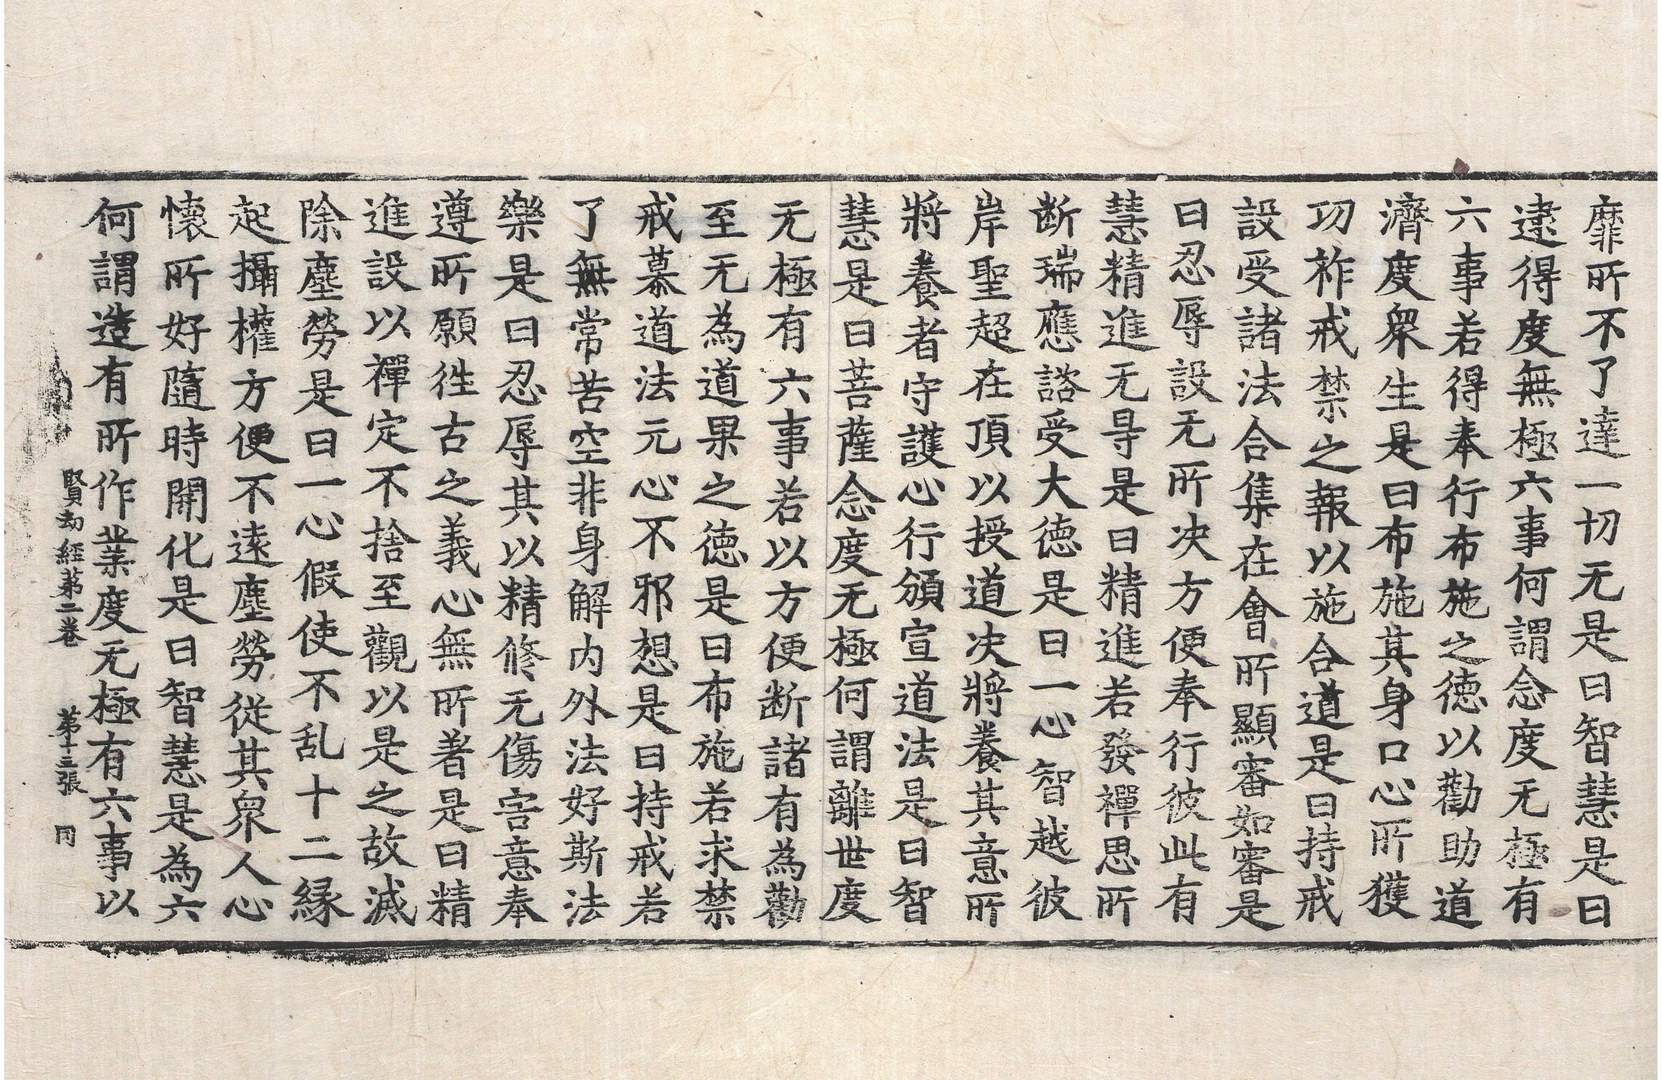 靡所不了達一切无是曰智慧是曰
逮得度無極六事何謂念度无極有
六事若得奉行布施之德以勸助道
濟度衆生是曰布施其身口心所獲
功祚戒禁之報以施合道是曰持戒
設受諸法合集在會所顯審如審是
曰忍辱設无所决方便奉行彼此有
慧精進无㝵是曰精進若發禪思所
断瑞應諮受大德是曰一心智越彼
岸聖超在頂以授道决將養其意所
將養者守護心行頒宣道法是曰智
慧是曰菩薩念度无極何謂離世度
无極有六事若以方便断諸有為勸
至无為道果之德是曰布施若求禁
戒慕道法元心不邪想是曰持戒若
了無常苦空非身解内外法好斯法
樂是曰忍辱其以精修无傷害意奉
遵所願徃古之義心無所著是曰精
進設以禪定不捨至觀以是之故滅
除塵勞是曰一心假使不乱十二縁
起攝權方便不遠塵勞從其衆人心
懷所好隨時開化是曰智慧是為六
何謂造有所作業度无極有六事以
賢劫經第二卷 第十三張 同